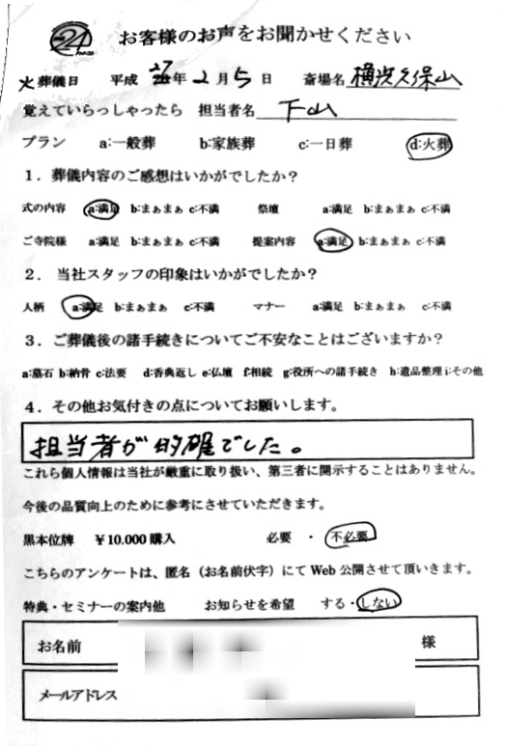 24
お客様のお声をお聞かせください
火葬儀日 平成27年2月5日 斎場名 横浜久保山
覚えていらっしゃったら 担当者名 下山
プラン a:一般葬 b:家族葬 c:一日葬 d:火葬
1．葬儀内容のご感想はいかがでしたか？
式の内容 a:満足 b:まぁまぁ c:不満 祭壇 a:満足 b:まぁまぁ c:不満
ご寺院様 a:満足 b:まぁまぁ c:不満 提案内容 a:満足 b:まぁまぁ c:不満
2．当社スタッフの印象はいかがでしたか？
人柄 a:満足 b:まぁまぁ c:不満 マナー a:満足 b:まぁまぁ c:不満
3．ご葬儀後の諸手続きについてご不安なことはございますか？
a:墓石 b:納骨 c:法要 d:香典返し e:仏壇 f:相続 g:役所への諸手続き h:遺品整理 i:その他
4．その他お気付きの点についてお願いします。
担当者が的確でした。
これら個人情報は当社が厳重に取り扱い、第三者に開示することはありません。
今後の品質向上のために参考にさせていただきます。
黒本位牌 ￥10.000購入 必要 ・ 不必要
こちらのアンケートは、匿名（お名前伏字）にて Web 公開させて頂いきます。
特典・セミナーの案内他 お知らせを希望 する・しない
お名前 様
メールアドレス